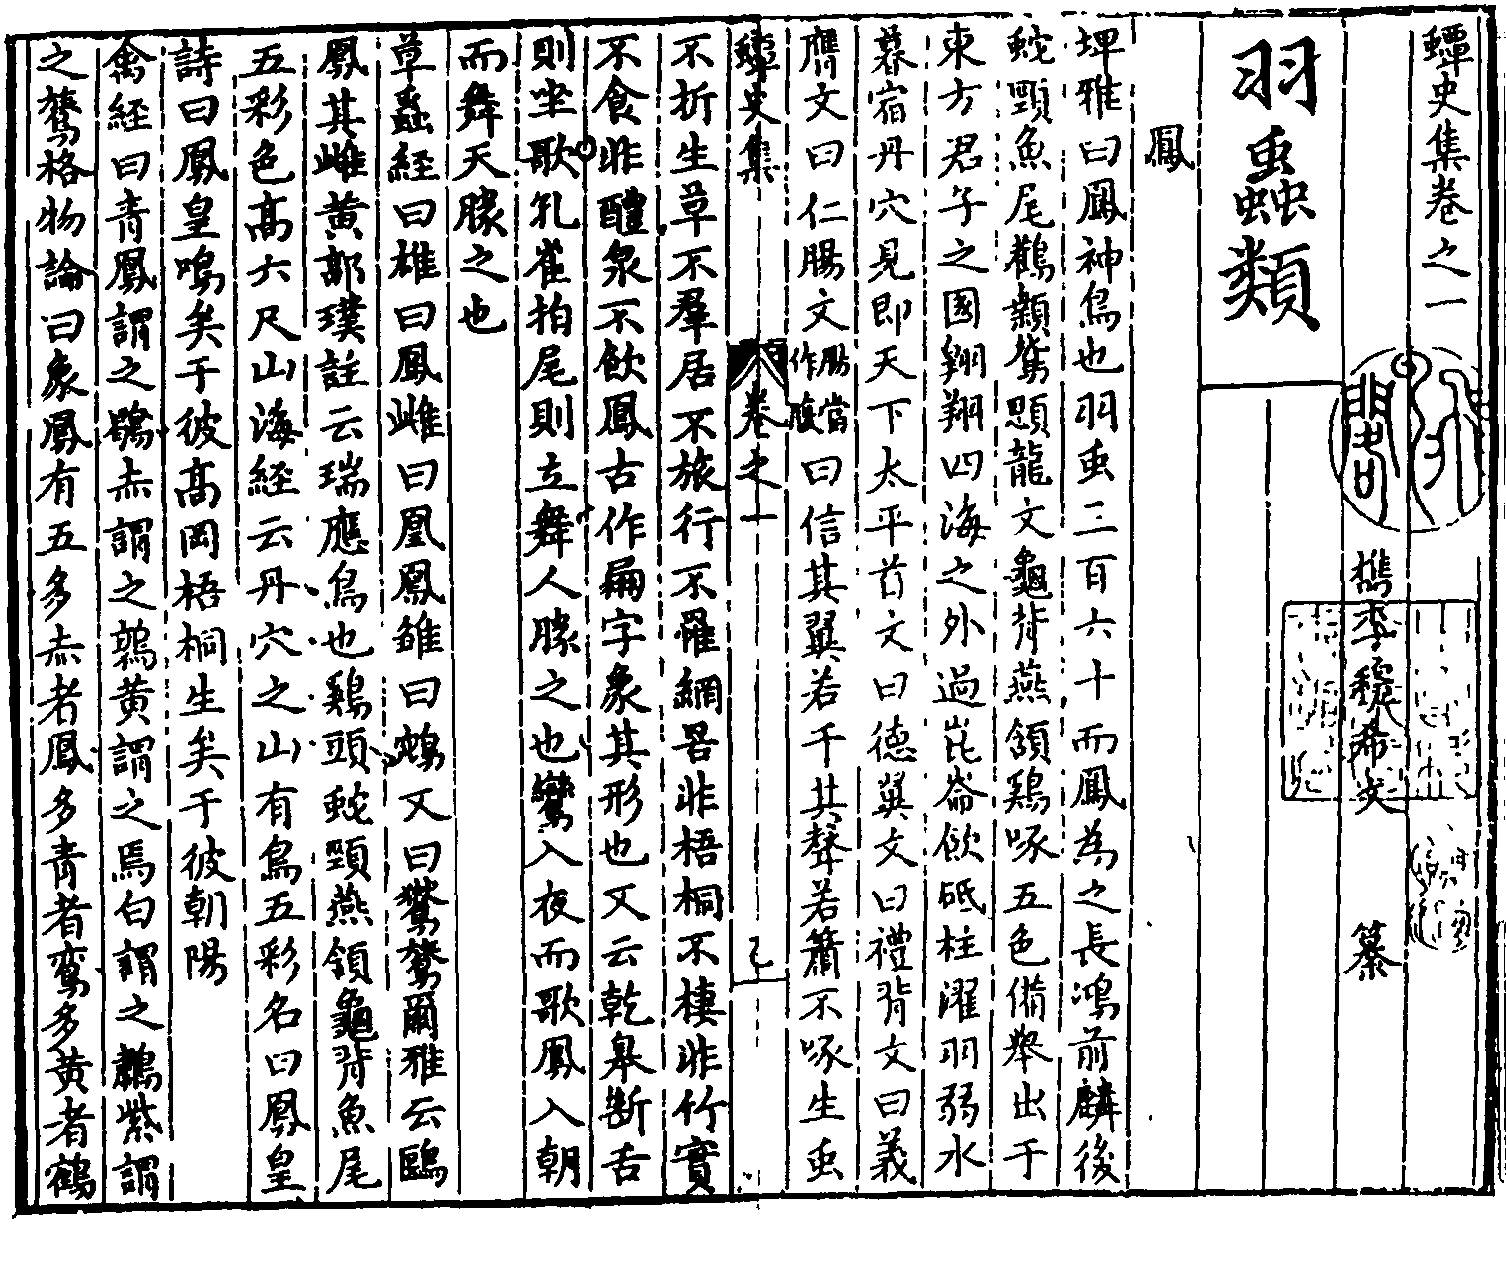 蟫史集卷之一
檇李穆希文 纂
羽蟲類
鳳
埤雅曰鳳神鳥也羽虫三百六十而鳳為之長鴻前麟後
蛇頸魚尾鸛顙鴛顋龍文龜背燕頷鷄啄五色備舉出于
東方君子之國翱翔四海之外過崑崙飲砥柱濯羽弱水
暮宿丹穴見即天下太平首文曰德翼文曰禮背文曰義
膺文曰仁腸文腸當作膺曰信其翼若千其聲若簫不啄生虫
蟫史集 卷之一 乙
不折生草不羣居不旅行不罹網罟非梧桐不棲非竹實
不食非醴泉不飲鳳古作朋字象其形也又云乾皋斷舌
則坐歌孔雀拍尾則立舞人勝之也鸞入夜而歌鳳入朝
而舞天勝之也
草蟲經曰雄曰鳳雌曰凰鳳雛曰鵷又曰鸑鷟爾雅云鶠
鳳其雌黃郭璞註云瑞應鳥也鷄頭蛇頸燕頷龜背魚尾
五彩色高六尺山海経云丹穴之山有鳥五彩名曰鳳皇
詩曰鳳皇鳴矣于彼高岡梧桐生矣于彼朝陽
禽経曰青鳳謂之鶡赤謂之鶉黃謂之焉白謂之鷫紫謂
之鷟格物論曰象鳳有五多赤者鳳多青者鸞多黃者鵷